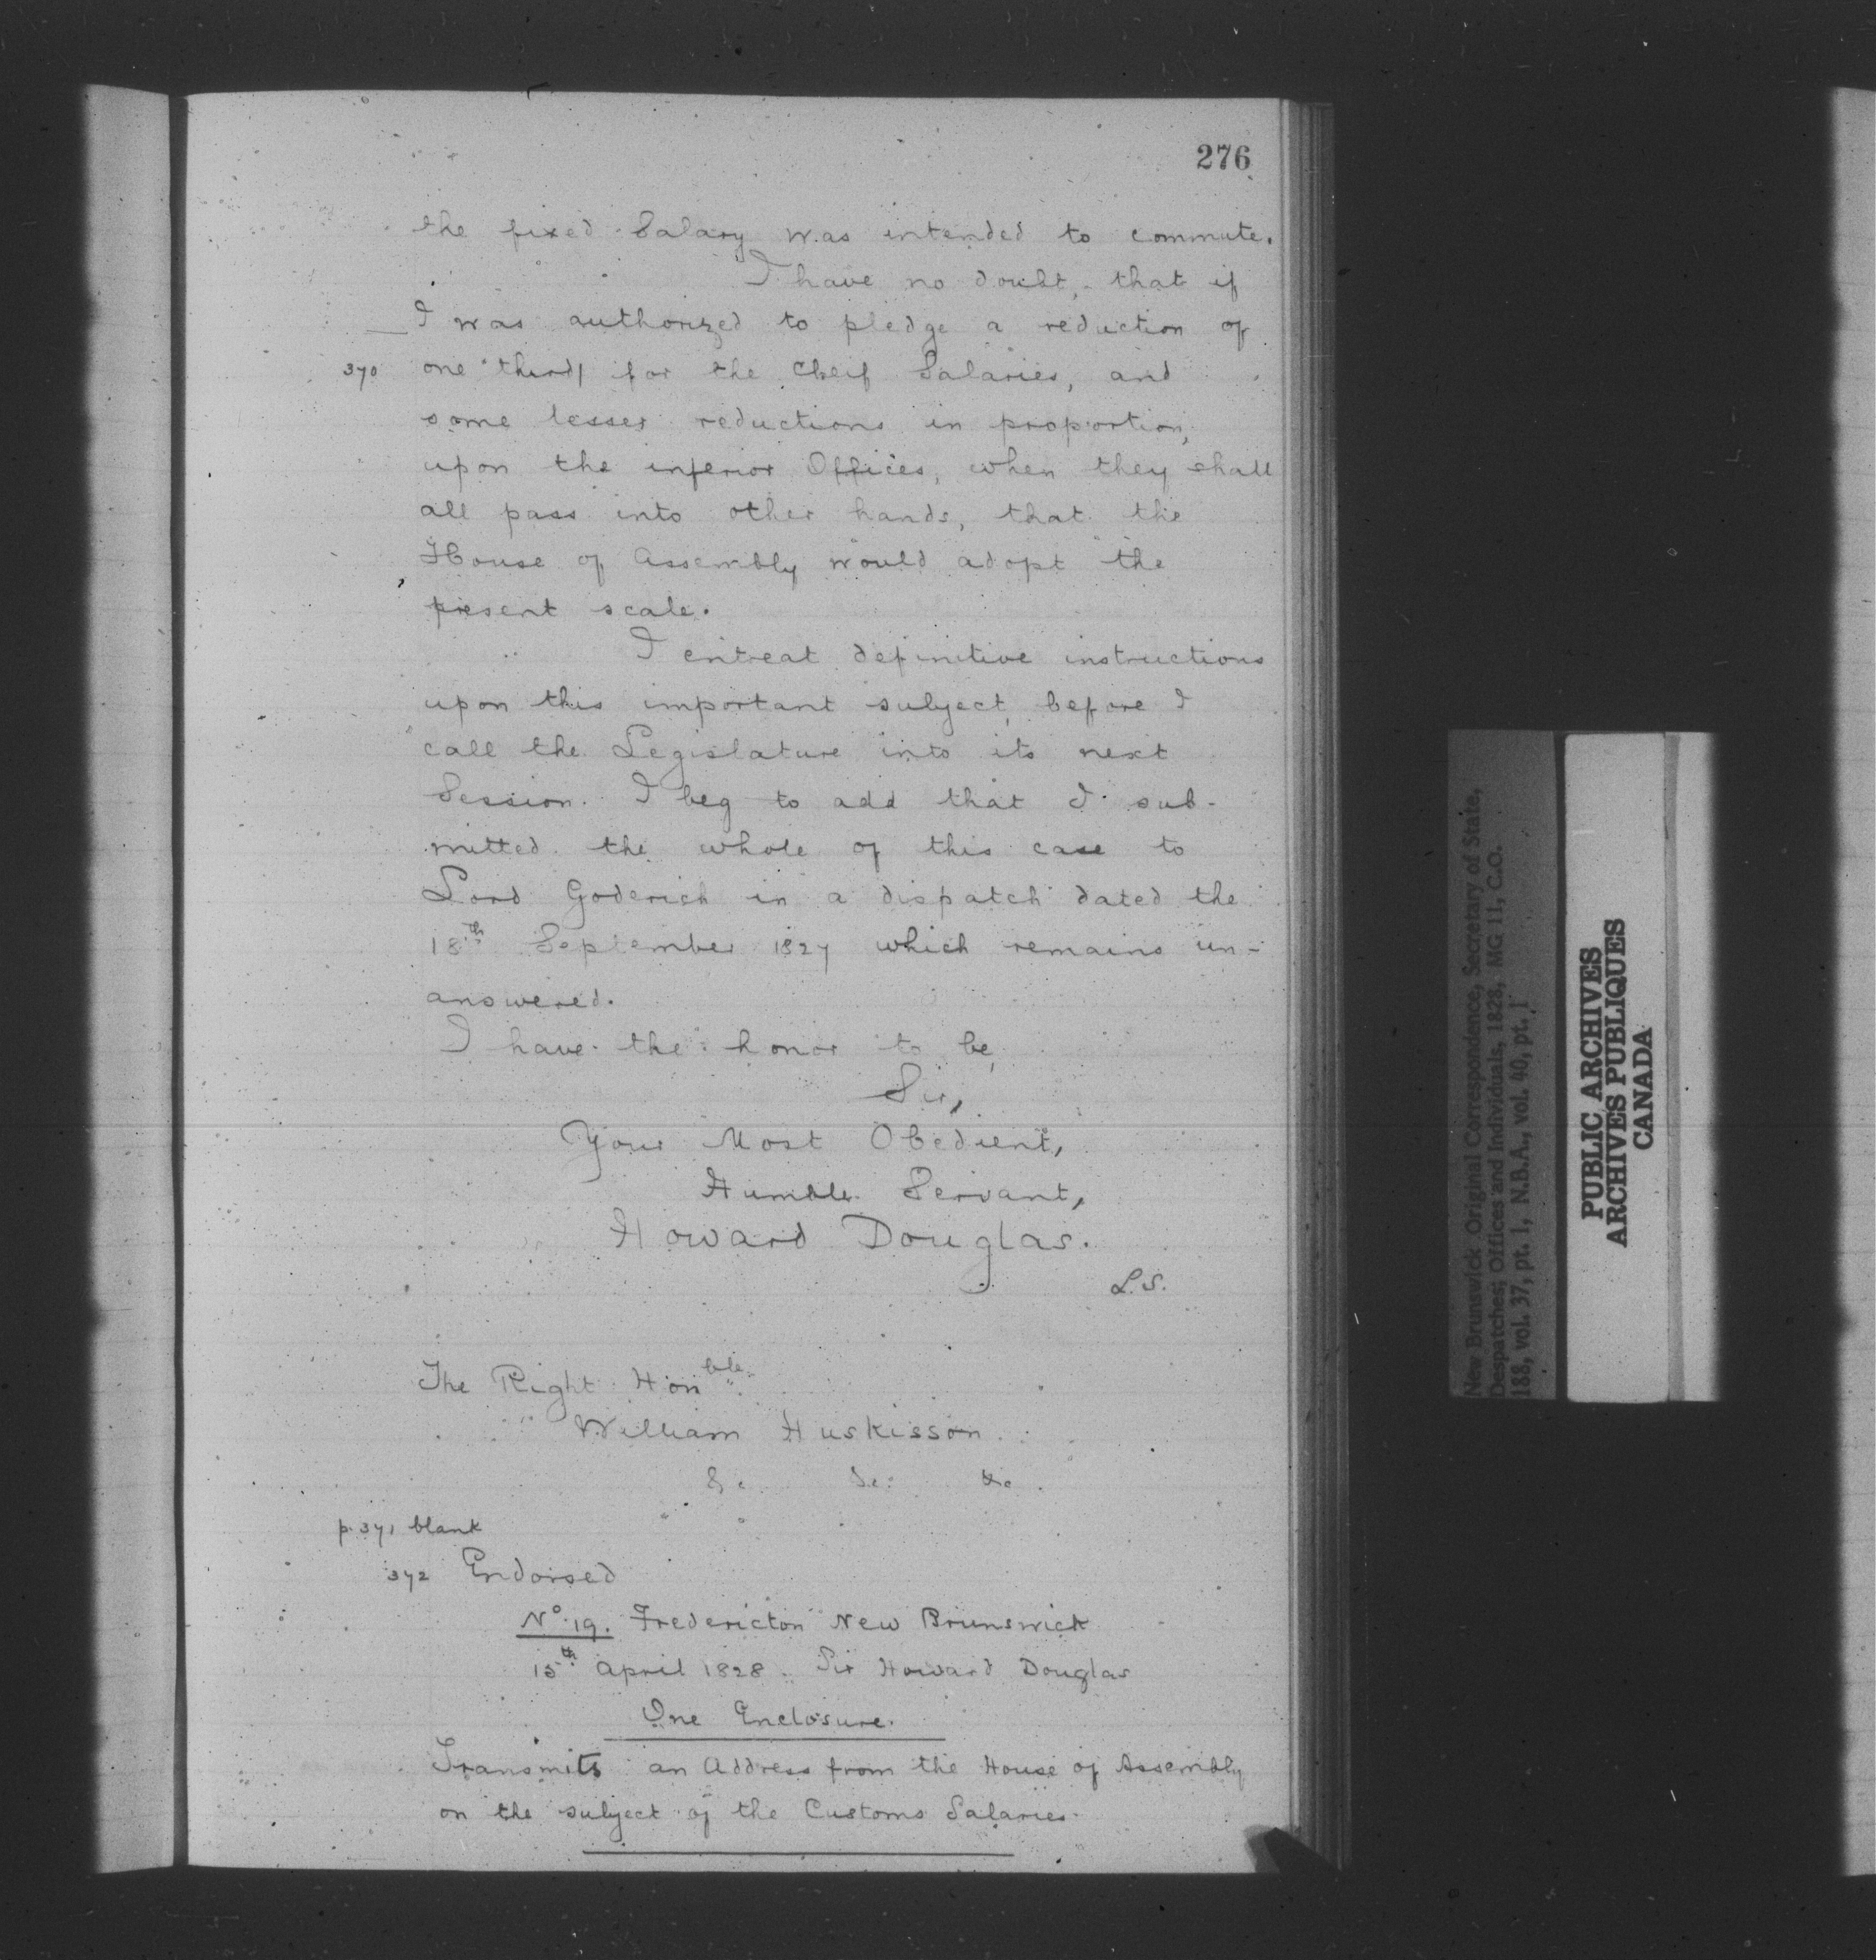 276
the fixed Salary was intended to commute.
I have no doubt, that if
I was authorized to pledge a reduction of
370 one third for the Cheif Salaries, and
some lesser reductions in proportion,
upon the inferior Offices, when they shall
all pass into other hands, that the
House of Assembly would adopt the
present scale.
I entreat definitive instructions
upon this important subject, before I
call the Legislature into its next
Session. I beg to add that I sub-
mitted the whole of this case to
Lord Goderich in a dispatch dated the
18th September 1827 which remains un-
answered.
I have the honor to be,
Sir,
Your Most Obedient,
Humble Servant,
Howard Douglas.
L.S.
The Right Honble
William Huskisson
&c &c: &c.
p. 371 blank
372 Endorsed
No 19. Fredericton New Brunswick
15th April 1828. Sir Howard Douglas
One Enclosure.
Transmits an Address from the House of Assembly
on the subject of the Customs Salaries.
New Brunswick Original Correspondence, Secretary of State,
Despatches; Offices and Individuals, 1828, MG 11, C.O.
188, vol. 37, pt. 1, N.B.A., vol. 40, pt. 1
PUBLIC ARCHIVES
ARCHIVES PUBLIQUES
CANADA